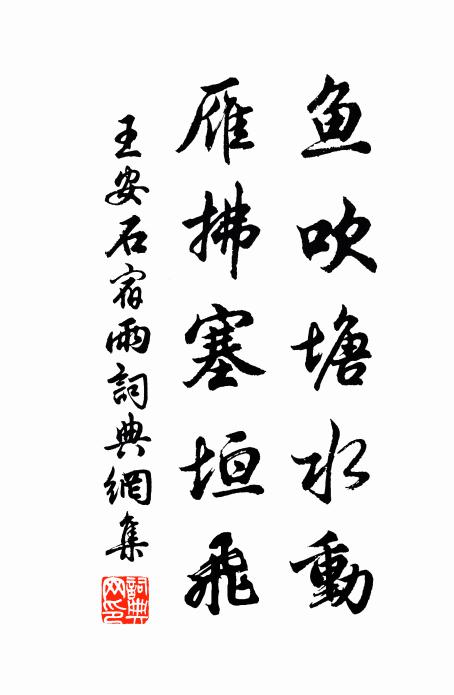 鱼吹塘水動
雁拂塞垣飛
王安石宿雨詞典網集
詞典網印